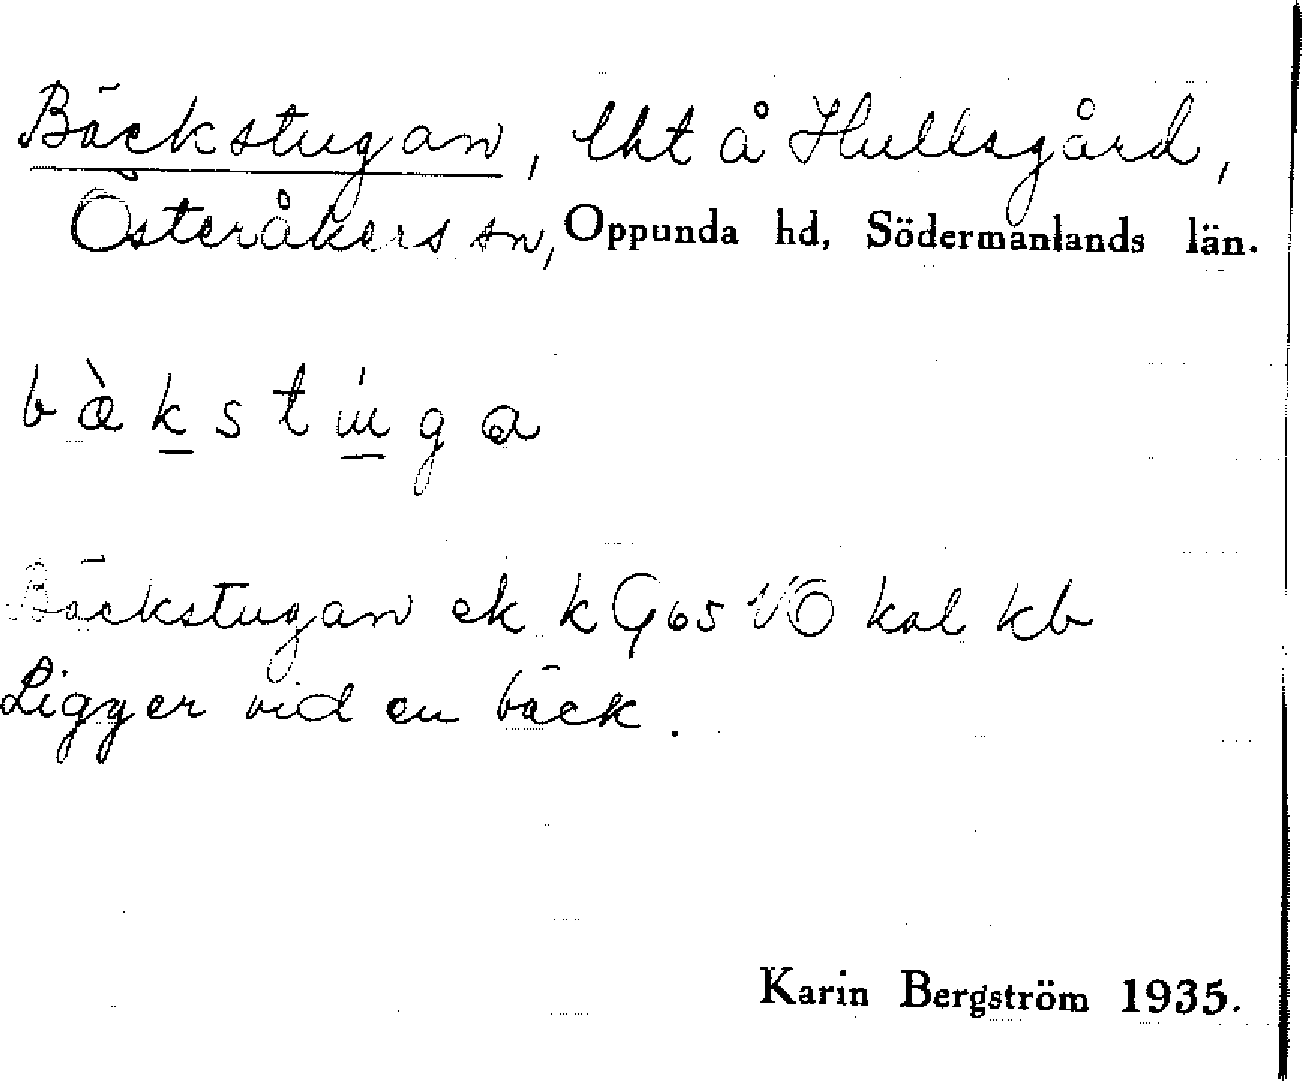 Bäckstugan, lht å Hullsgård,
Österåkers sn, Oppunda hd, Södermanlands län.
Bäckstugan ek k G65 VO kal kb
Ligger vid en bäck.
Karin Bergström 1935.